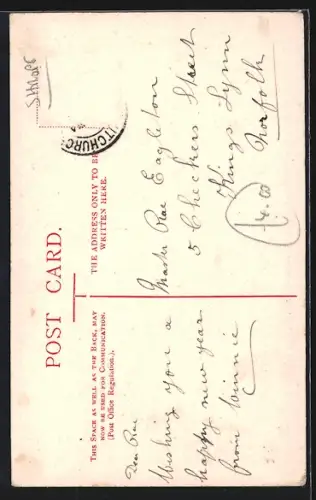 POST CARD.
THIS SPACE AS WELL AS THE BACK, MAY
NOW BE USED FOR COMMUNICATION.
(Post Office Regulation.)
THE ADDRESS ONLY TO BE
WRITTEN HERE.
TCHURC
Dear Rae
Wishing you a
happy new year
from Winnie
Master Rae Eagleton
5 Checkers Street
Kings Lynn
Norfolk